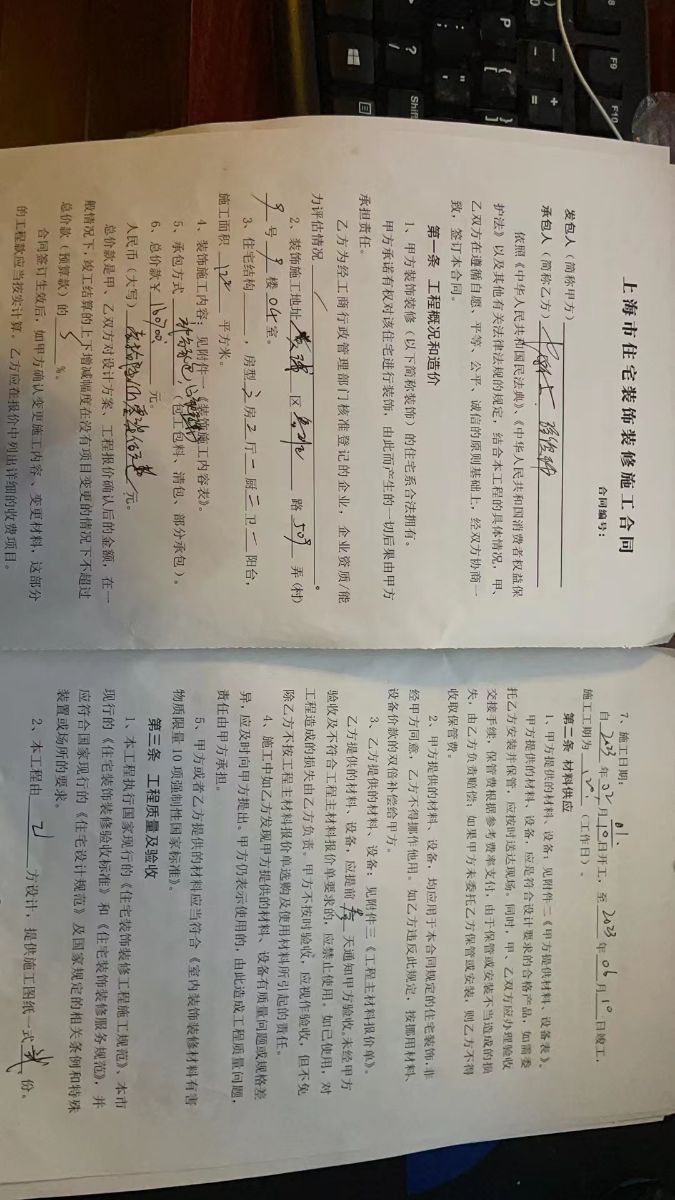 上海市住宅装饰装修施工合同
合同编号：
发包人（简称甲方）
承包人（简称乙方）
依照《中华人民共和国民法典》、《中华人民共和国消费者权益保
护法》以及其他有关法律法规的规定，结合本工程的具体情况，甲、
乙双方在遵循自愿、平等、公平、诚信的原则基础上，经双方协商一
致，签订本合同。
第一条 工程概况和造价
1、甲方装饰装修（以下简称装饰）的住宅系合法拥有。
甲方承诺有权对该住宅进行装饰，由此而产生的一切后果由甲方
承担责任。
乙方为经工商行政管理部门核准登记的企业，企业资质/能
力评估情况 / 。
2、装饰施工地址 区 路 509 弄（村）
9 号 9 楼 04 室。
3、住宅结构 ，房型 2 房 2 厅 二 厨 二 卫 二 阳台，
施工面积 122 平方米。
4、装饰施工内容：见附件一《装饰施工内容表》。
5、承包方式 （包工包料、清包、部分承包）。
6、总价款￥ 160700 元。
人民币（大写） 元。
总价款是甲、乙双方对设计方案、工程报价确认后的金额，在一
般情况下，竣工结算的上下增减幅度在没有项目变更的情况下不超过
总价款（预算款）的 5 %。
合同签订生效后，如甲方确认变更施工内容、变更材料，这部分
的工程款应当按实计算。乙方应在报价中列出详细的收费项目。
7、施工日期：
自 2023 年 月 10 日开工，至 2023 年 06 月 10 日竣工，
施工工期为 （工作日）。
第二条 材料供应
1、甲方提供的材料、设备：见附件二《甲方提供材料、设备表》。
甲方提供的材料、设备，应是符合设计要求的合格产品，如需委
托乙方安装并保管，应按时送达现场。同时，甲、乙双方应办理验收
交接手续，保管费根据参考费率支付，由于保管或安装不当造成的损
失，由乙方负责赔偿；如果甲方未委托乙方保管或安装，则乙方不得
收取保管费。
2、甲方提供的材料、设备，均应用于本合同规定的住宅装饰，非
经甲方同意，乙方不得挪作他用。如乙方违反此规定，按挪用材料、
设备价款的双倍补偿给甲方。
3、乙方提供的材料、设备：见附件三《工程主材料报价单》。
乙方提供的材料、设备，应提前 天通知甲方验收。未经甲方
验收及不符合工程主材料报价单要求的，应禁止使用。如已使用，对
工程造成的损失由乙方负责。甲方不按时验收，应视作验收，但不免
除乙方不按工程主材料报价单选购及使用材料所引起的责任。
4、施工中如乙方发现甲方提供的材料、设备有质量问题或规格差
异，应及时向甲方提出。甲方仍表示使用的，由此造成工程质量问题，
责任由甲方承担。
5、甲方或者乙方提供的材料应当符合《室内装饰装修材料有害
物质限量10项强制性国家标准》。
第三条 工程质量及验收
1、本工程执行国家现行的《住宅装饰装修工程施工规范》、本市
现行的《住宅装饰装修验收标准》和《住宅装饰装修服务规范》，并
应符合国家现行的《住宅设计规范》及国家规定的相关条例和特殊
装置或场所的要求。
2、本工程由 乙 方设计，提供施工图纸一式 贰 份。